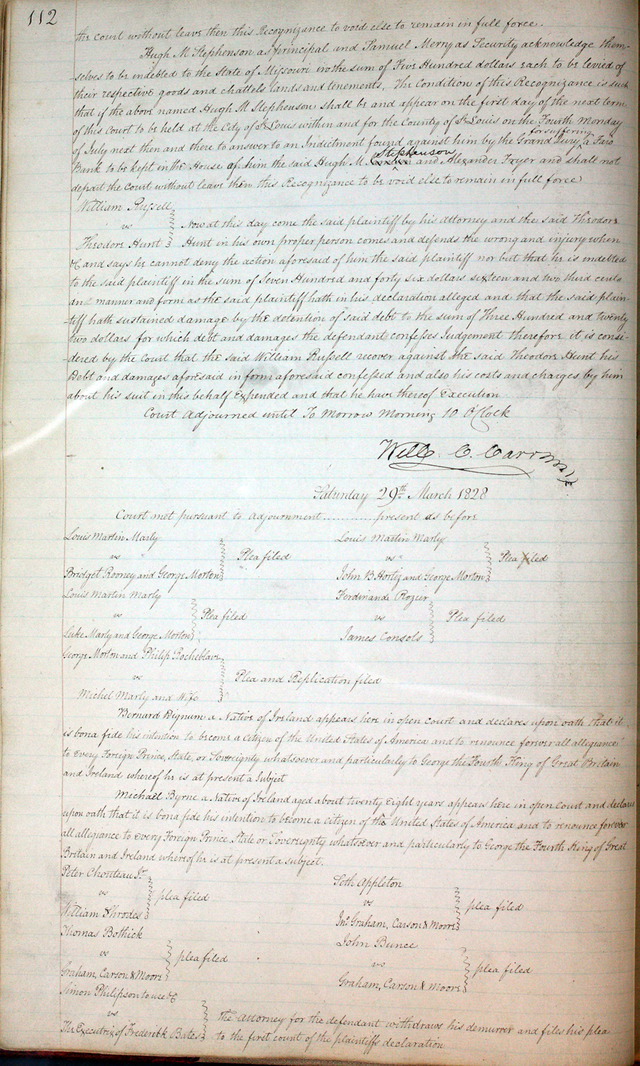 112
the court without leave then this Recognizance to void else to remain in full force.
Hugh M Stephenson as principal and Samuel Merry as Security acknowledge them-
selves to be indebted to the State of Missouri in the sum of Five Hundred dollars each to be levied of
their respective goods and chattels lands and tenements. The Condition of this Recognizance is such
that if the above named Hugh M Stephenson shall be and appear on the first day of the next term
of this Court to be held at the City of St Louis within and for the County of St Louis on the Fourth Monday
of July next then and there to answer to an Indictment found against him by the Grand Jury for suffering a Faro
Bank to be kept in the House of him the said Hugh M. Stephenson and Alexander Fryer and shall not
depart the Court without leave then this Recognizance to be void else to remain in full force
William Russell
vs
Theodore Hunt
Now at this day come the said plaintiff by his Attorney and the said Theodore
Hunt in his own proper person comes and defends the wrong and injury when
&c and says he cannot deny the action aforesaid of him the said plaintiff no but that he is indebted
to the said plaintiff in the sum of Seven Hundred and forty six dollars sixteen and two third cents
in manner and form as the said plaintiff hath in his declaration alleged and that the said plain-
tiff hath sustained damage by the detention of said debt to the sum of Three Hundred and twenty
two dollars for which debt and damages the defendant confesses Judgement therefore it is consi-
dered by the Court that the said William Russell recover against the said Theodore Hunt his
Debt and damages aforesaid in form aforesaid confessed and also his costs and charges by him
about his suit in this behalf Expended and that he have thereof Execution
Court adjourned until To Morrow Morning 10 O'Clock
Will. C. Carr
Saturday 29th March 1828
Court met pursuant to adjournment present as before
Louis Martin Marly
vs
Bridget Rooney and George Morton
Plea filed
Louis Martin Marly
vs
John B Hortiz and George Morton
Plea filed
Louis Martin Marly
vs
Luke Marly and George Morton
Plea filed
Ferdinande Rozier
vs
James Consols
Plea filed
George Morton and Philip Rocheblave
vs
Michel Marly and Wife
Plea and Replication filed
Bernard Bignum a Native of Ireland appears here in open court and declares upon oath that it
is bona fide his intention to become a citizen of the United States of America and to renounce forever all allegiance
to Every Foreign Prince, State, or Sovereignty whatsoever and particularly to George the Fourth King of Great Britain
and Ireland whereof he is at present a Subject
Michael Byrne a Native of Ireland aged about twenty Eight years appears here in open Court and declares
upon oath that it is bona fide his intention to become a citizen of the United States of America and to renounce forever
all allegiance to Every Foreign Prince State or Sovereignty whatsoever and particularly to George the Fourth King of Great
Britain and Ireland whereof he is at present a subject.
Peter Chouteau Jr
vs
William Rhrodes
plea filed
Seth Appleton
vs
Jno Graham, Carson & Moore
plea filed
Thomas Bothick
vs
Graham, Carson & Moore
plea filed
John Bunce
vs
Graham, Carson & Moore
plea filed
Simon Philipson to use &c
vs
The Executrix of Frederick Bates
The attorney for the defendant withdraws his demurrer and files his plea
to the first count of the plaintiffs declaration